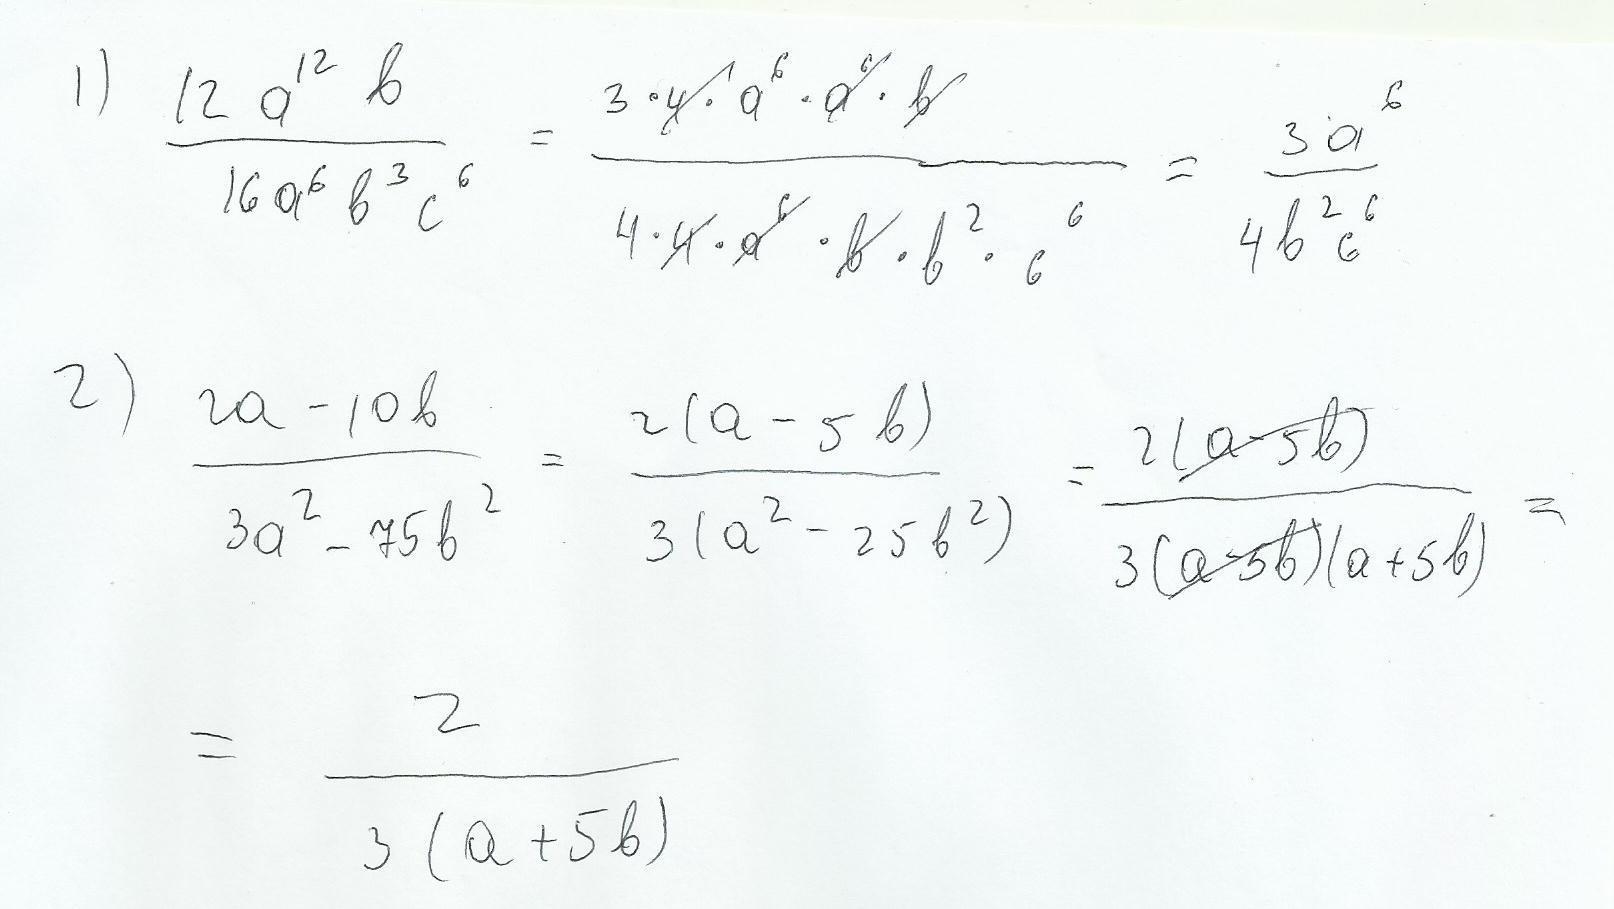 1) 12a¹²b / 16a⁶b³c⁶ = 3·4·a⁶·a⁶·b / 4·4·a⁶·b·b²·c⁶ = 3a⁶ / 4b²c⁶
2) 2a-10b / 3a²-75b² = 2(a-5b) / 3(a²-25b²) = 2(a-5b) / 3(a-5b)(a+5b) =
= 2 / 3(a+5b)